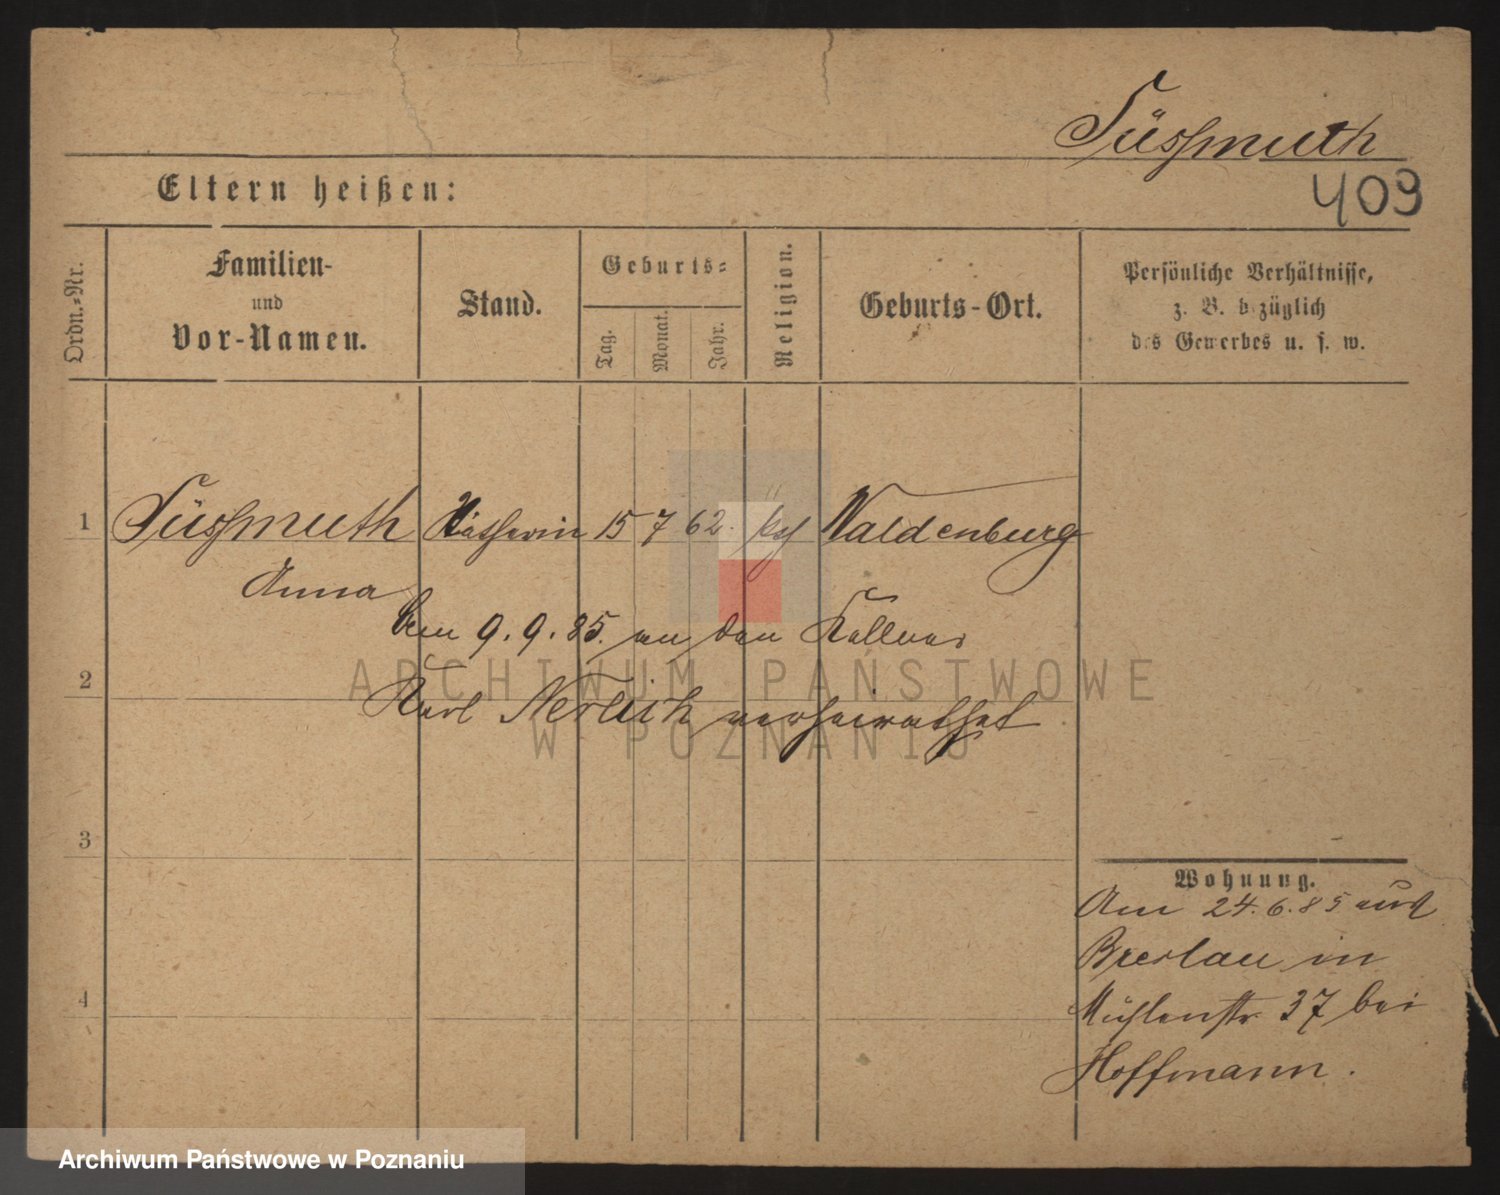 Süssmuth
409
Eltern heißen:
Ordn.-Nr.
Familien-
und
Vor-Namen.
Stand.
Geburts-
Tag.
Monat.
Jahr.
Religion.
Geburts-Ort.
Persönliche Verhältnisse,
z. B. bezüglich
des Gewerbes u. s. w.
1 Süssmuth Nätherin 15 7 62. Waldenburg
Anna
Am 9. 9. 85. an den Kellner
2
Karl Nerlich verheirathet
ARCHIWUM PAŃSTWOWE
W POZNANIU
3
Wohnung.
Am 24. 6. 85 aus
Breslau in
4
Mühlenstr. 37 bei
Hoffmann.
Archiwum Państwowe w Poznaniu